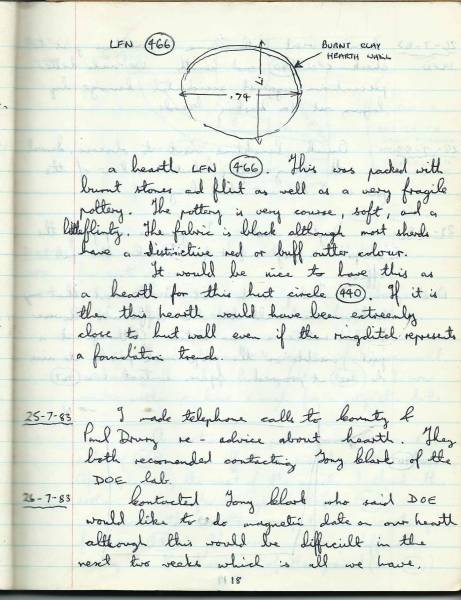 LFN 466
BURNT CLAY
HEARTH WALL
.74
a hearth LFN 466. This was packed with
burnt stones and flint as well as a very fragile
pottery. The pottery is very course, soft, and a
little flinty. The fabric is black although most sherds
have a distinctive red or buff outter colour.
It would be nice to have this as
a hearth for this hut circle 440. If it is
then this hearth would have been extreemly
close to hut wall even if the ringditch represents
a foundation trench.
25-7-83 I made telephone calls to County &
Paul Drury re - advice about hearth. They
both recomended contacting Tony Clark of the
DOE lab.
26-7-83 Contacted Tony Clark who said DOE
would like to do magnetic date on our hearth
although this would be difficult in the
next two weeks which is all we have.
18